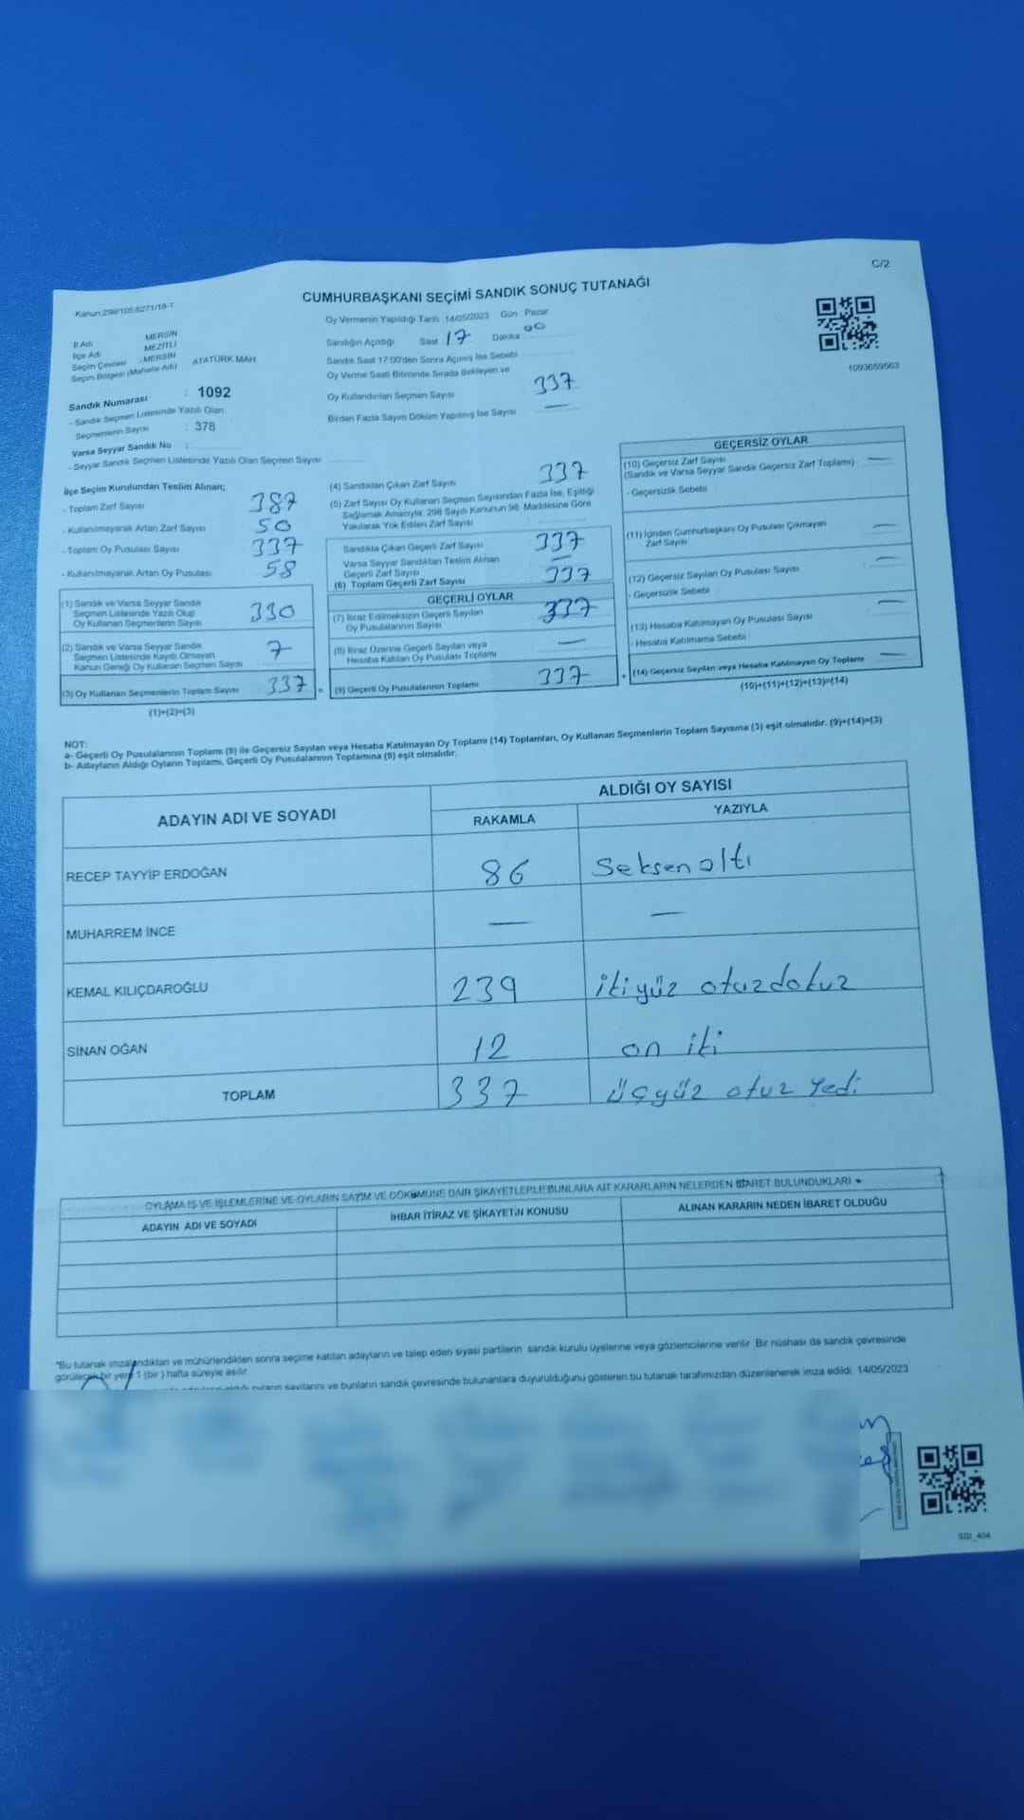 C/2
Kanun:298/105;6271/18-T
CUMHURBAŞKANI SEÇİMİ SANDIK SONUÇ TUTANAĞI
İl Adı : MERSİN
İlçe Adı : MEZİTLİ
Seçim Çevresi : MERSİN
Seçim Bölgesi (Mahalle Adı) ATATÜRK MAH.
Sandık Numarası : 1092
- Sandık Seçmen Listesinde Yazılı Olan
Seçmenlerin Sayısı : 378
Varsa Seyyar Sandık No :
- Seyyar Sandık Seçmen Listesinde Yazılı Olan Seçmen Sayısı
Oy Vermenin Yapıldığı Tarih 14/05/2023 Gün Pazar
Sandığın Açıldığı Saat 17 Dakika 00
Sandık Saat 17:00'den Sonra Açılmış İse Sebebi
Oy Verme Saati Bitiminde Sırada Bekleyen ve
Oy Kullandırılan Seçmen Sayısı 337
Birden Fazla Sayım Döküm Yapılmış İse Sayısı —
1093659563
İlçe Seçim Kurulundan Teslim Alınan;
- Toplam Zarf Sayısı 387
- Kullanılmayarak Artan Zarf Sayısı 50
- Toplam Oy Pusulası Sayısı 337
- Kullanılmayarak Artan Oy Pusulası 58
(1) Sandık ve Varsa Seyyar Sandık
Seçmen Listesinde Yazılı Olup
Oy Kullanan Seçmenlerin Sayısı 330
(2) Sandık ve Varsa Seyyar Sandık
Seçmen Listesinde Kayıtlı Olmayan
Kanun Gereği Oy Kullanan Seçmen Sayısı 7
(3) Oy Kullanan Seçmenlerin Toplam Sayısı 337
(1)+(2)=(3)
(4) Sandıktan Çıkan Zarf Sayısı 337
(5) Zarf Sayısı Oy Kullanan Seçmen Sayısından Fazla İse, Eşitliği
Sağlamak Amacıyla, 298 Sayılı Kanunun 98. Maddesine Göre
Yakılarak Yok Edilen Zarf Sayısı
Sandıkta Çıkan Geçerli Zarf Sayısı 337
Varsa Seyyar Sandıktan Teslim Alınan
Geçerli Zarf Sayısı —
(6) Toplam Geçerli Zarf Sayısı 337
GEÇERLİ OYLAR
(7) İtiraz Edilmeksizin Geçerli Sayılan
Oy Pusulalarının Sayısı 337
(8) İtiraz Üzerine Geçerli Sayılan veya
Hesaba Katılan Oy Pusulası Toplamı —
(9) Geçerli Oy Pusulalarının Toplamı 337
GEÇERSİZ OYLAR
(10) Geçersiz Zarf Sayısı —
(Sandık ve Varsa Seyyar Sandık Geçersiz Zarf Toplamı)
- Geçersizlik Sebebi
(11) İçinden Cumhurbaşkanı Oy Pusulası Çıkmayan —
Zarf Sayısı
(12) Geçersiz Sayılan Oy Pusulası Sayısı —
- Geçersizlik Sebebi
(13) Hesaba Katılmayan Oy Pusulası Sayısı —
- Hesaba Katılmama Sebebi
(14) Geçersiz Sayılan veya Hesaba Katılmayan Oy Toplamı —
(10)+(11)+(12)+(13)=(14)
NOT:
a- Geçerli Oy Pusulalarının Toplamı (9) ile Geçersiz Sayılan veya Hesaba Katılmayan Oy Toplamı (14) Toplamları, Oy Kullanan Seçmenlerin Toplam Sayısına (3) eşit olmalıdır. (9)+(14)=(3)
b- Adayların Aldığı Oyların Toplamı, Geçerli Oy Pusulalarının Toplamına (9) eşit olmalıdır.
ADAYIN ADI VE SOYADI
ALDIĞI OY SAYISI
RAKAMLA YAZIYLA
RECEP TAYYİP ERDOĞAN 86 Seksen altı
MUHARREM İNCE — —
KEMAL KILIÇDAROĞLU 239 ikiyüz otuzdokuz
SİNAN OĞAN 12 on iki
TOPLAM 337 üçyüz otuz yedi
OYLAMA İŞ VE İŞLEMLERİNE VE OYLARIN SAYIM VE DÖKÜMÜNE DAİR ŞİKAYETLERLE BUNLARA AİT KARARLARIN NELERDEN İBARET BULUNDUKLARI
ADAYIN ADI VE SOYADI İHBAR İTİRAZ VE ŞİKAYETİN KONUSU ALINAN KARARIN NEDEN İBARET OLDUĞU
*Bu tutanak imzalandıktan ve mühürlendikten sonra seçime katılan adayların ve talep eden siyasi partilerin sandık kurulu üyelerine veya gözlemcilerine verilir. Bir nüshası da sandık çevresinde
görülecek bir yere 1 (bir) hafta süreyle asılır.
oyların sayılarını ve bunların sandık çevresinde bulunanlara duyurulduğunu gösteren bu tutanak tarafımızdan düzenlenerek imza edildi. 14/05/2023